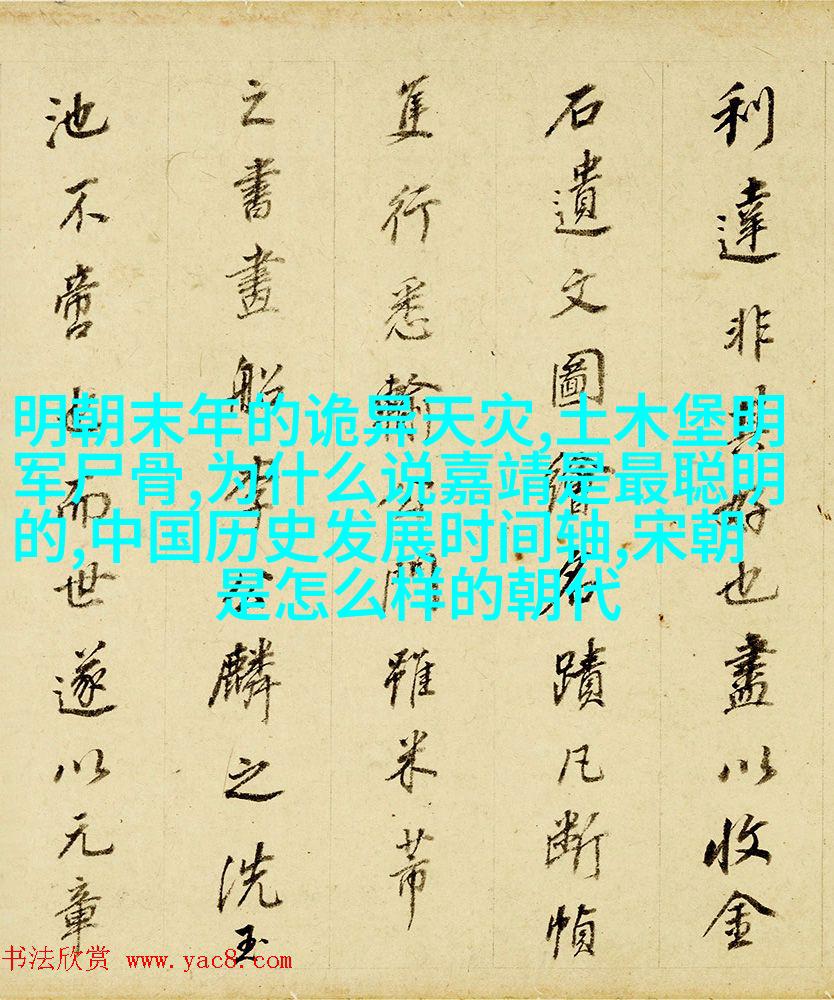 利達非其好也盡以收金
石遺文圖繪名蹟凡斷幀
隻行悉輸公門雖米芾
之書畫船李公麟之洗玉
池不啻也而世遂以元章
明朝末年的诡异天灾,土木堡明
军尸骨,为什么说嘉靖是最聪明
的,中国历史发展时间轴,宋朝
是怎么样的朝代
书法欣赏 www.yac8.com